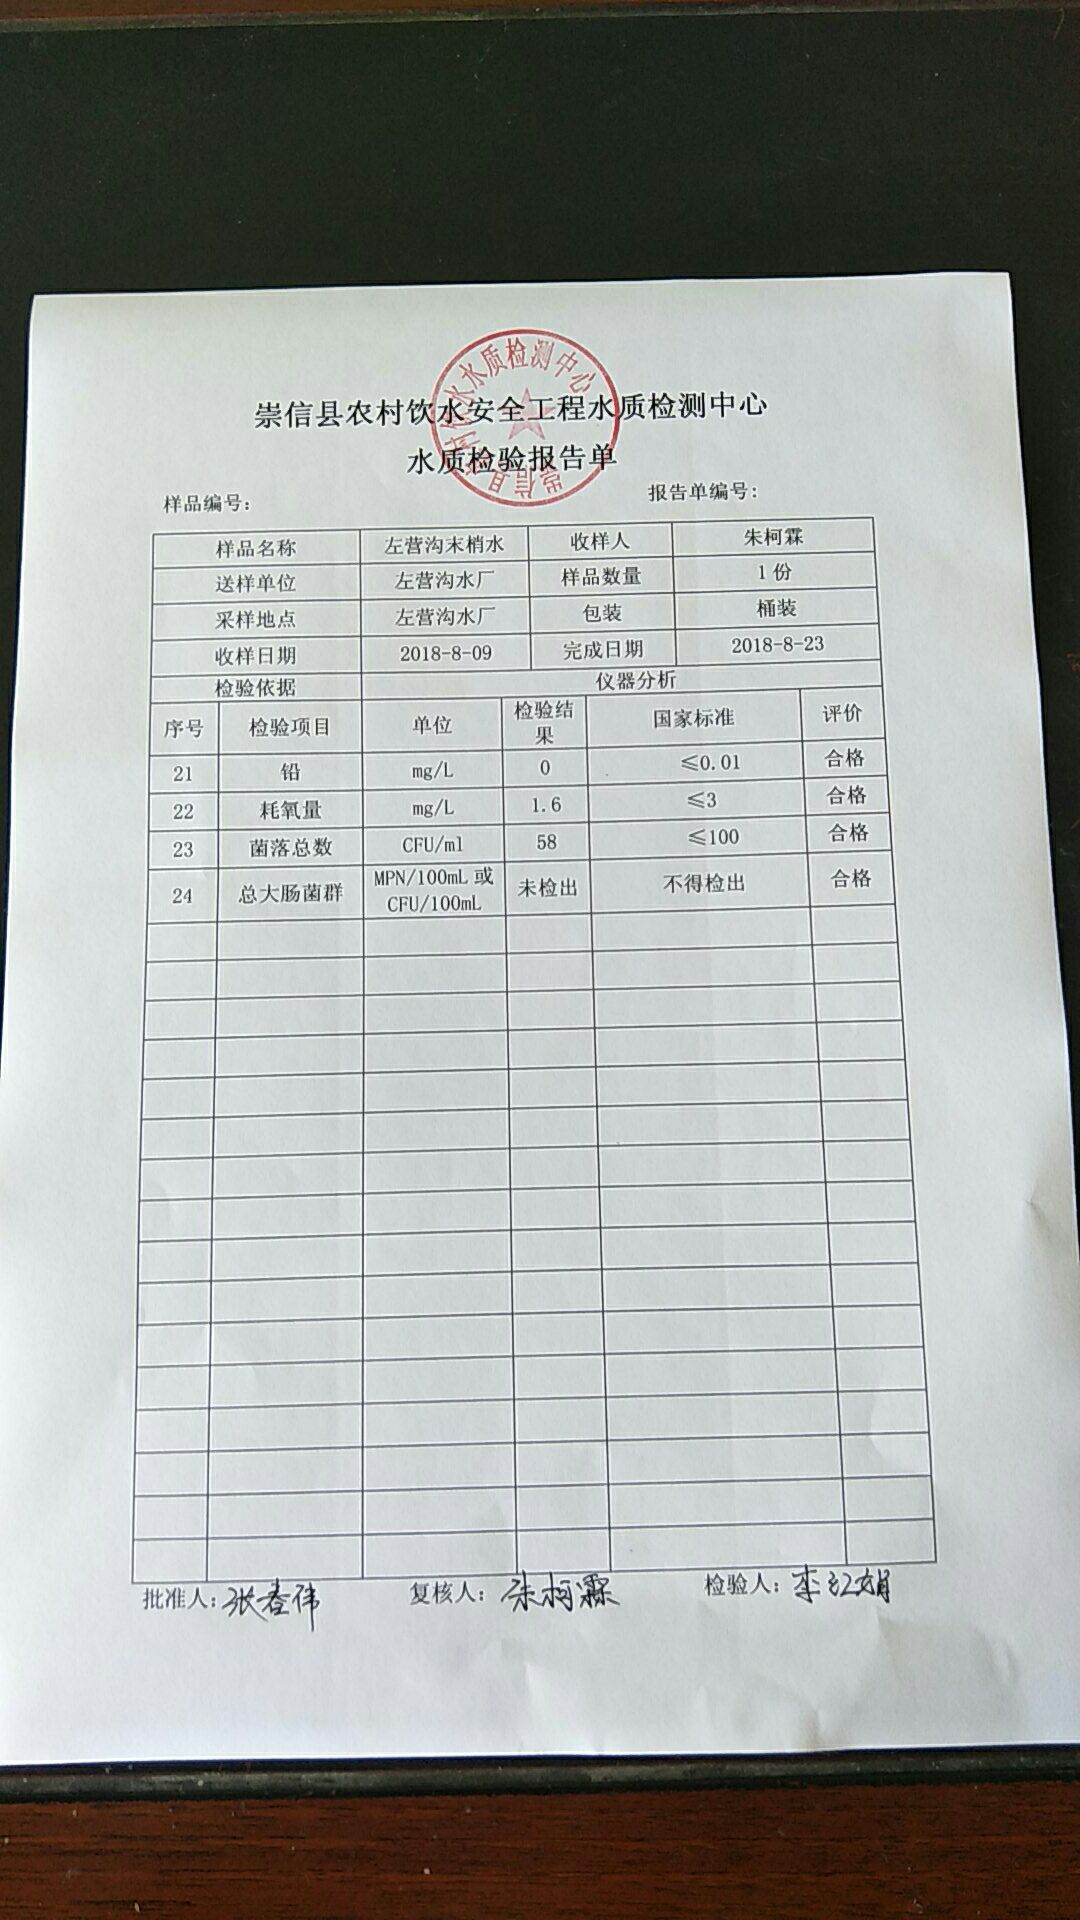 崇信县农村饮水安全工程水质检测中心
水质检验报告单
样品编号: 报告单编号:
样品名称 左营沟末梢水 收样人 朱柯霖
送样单位 左营沟水厂 样品数量 1份
采样地点 左营沟水厂 包装 桶装
收样日期 2018-8-09 完成日期 2018-8-23
检验依据 仪器分析
序号 检验项目 单位 检验结果 国家标准 评价
21 铅 mg/L 0 ≤0.01 合格
22 耗氧量 mg/L 1.6 ≤3 合格
23 菌落总数 CFU/ml 58 ≤100 合格
24 总大肠菌群 MPN/100mL 或 CFU/100mL 未检出 不得检出 合格
批准人: 张春伟 复核人: 朱柯霖 检验人: 李红娟